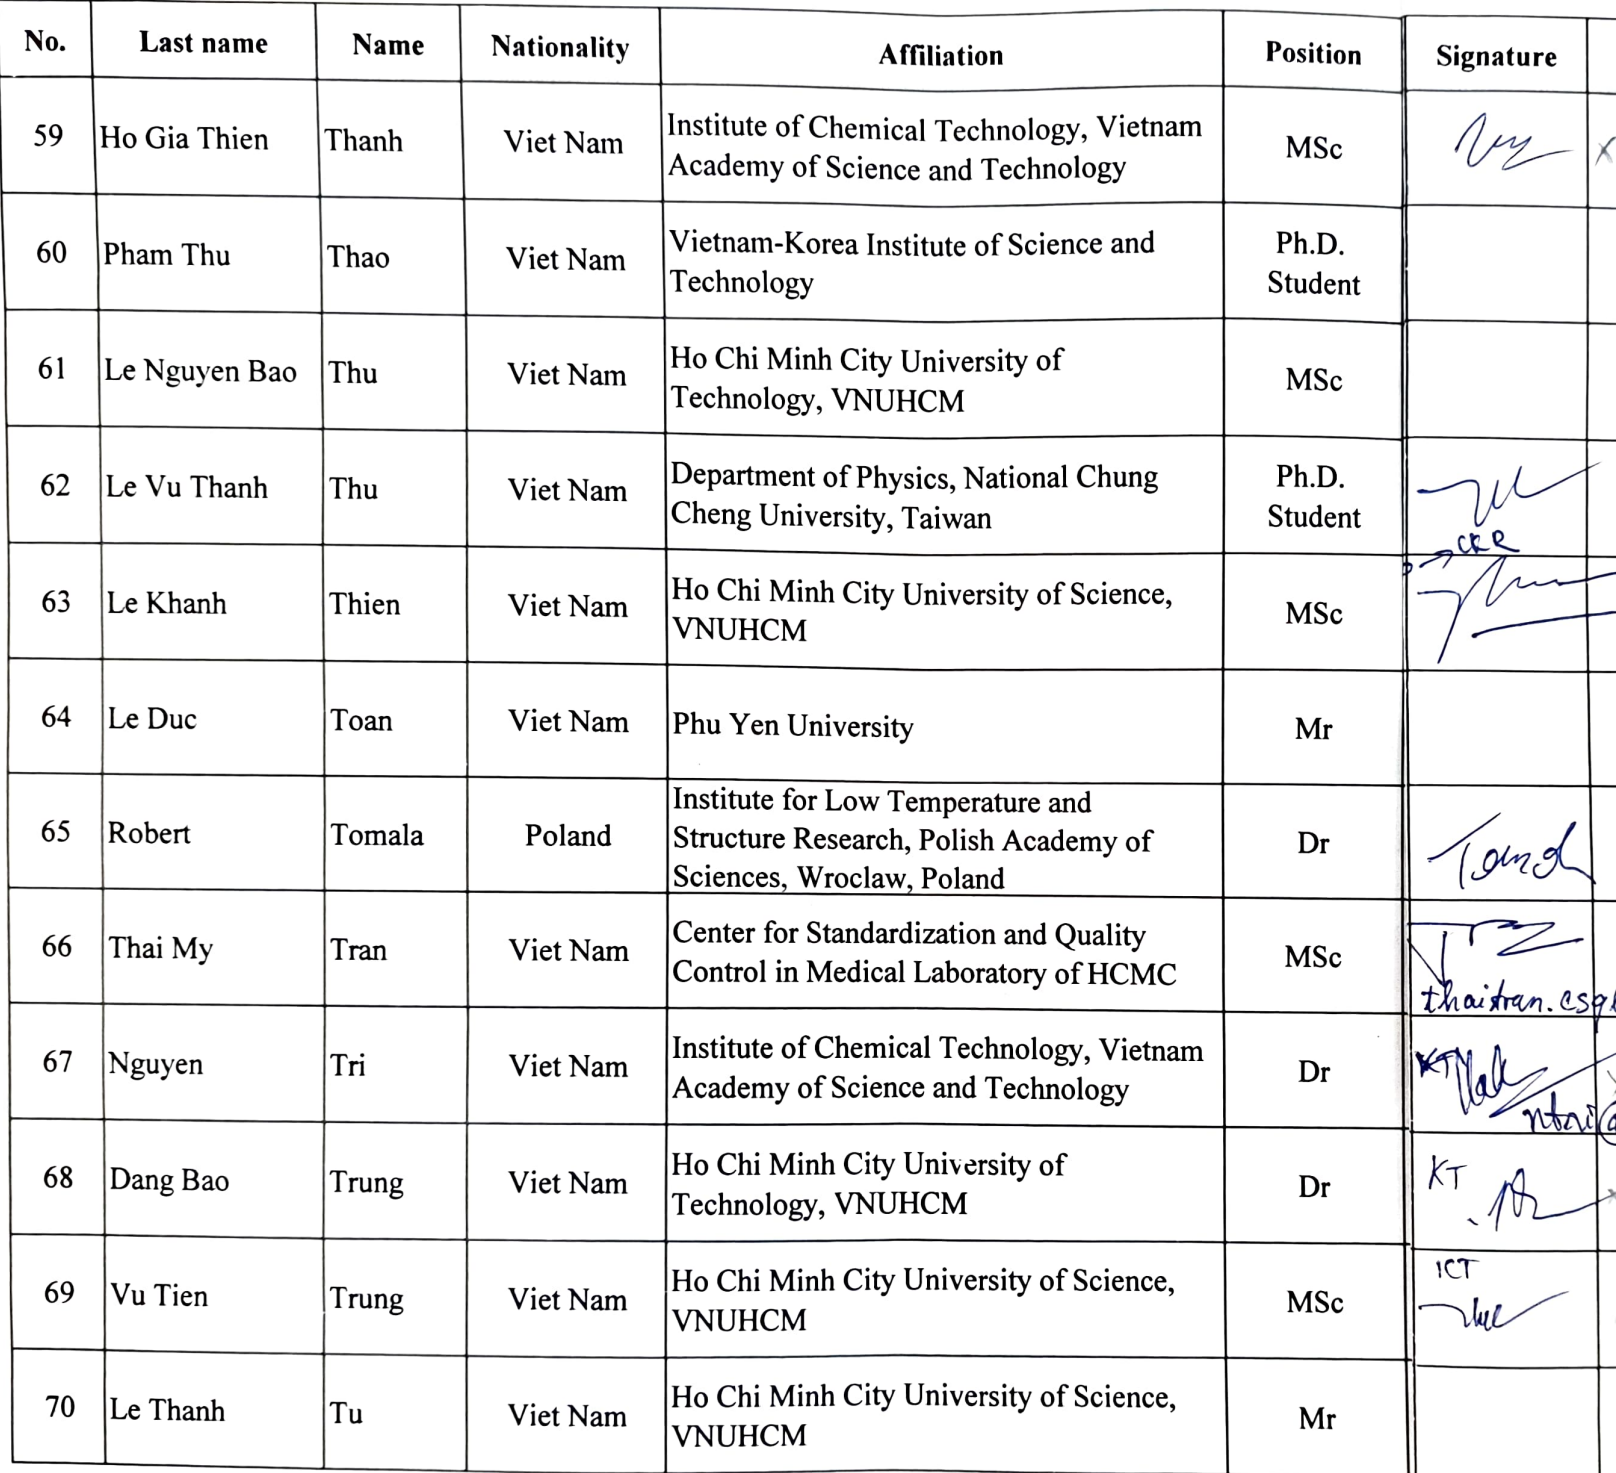 No. Last name Name Nationality Affiliation Position Signature
59 Ho Gia Thien Thanh Viet Nam Institute of Chemical Technology, Vietnam
Academy of Science and Technology MSc
60 Pham Thu Thao Viet Nam Vietnam-Korea Institute of Science and
Technology Ph.D.
Student
61 Le Nguyen Bao Thu Viet Nam Ho Chi Minh City University of
Technology, VNUHCM MSc
62 Le Vu Thanh Thu Viet Nam Department of Physics, National Chung
Cheng University, Taiwan Ph.D.
Student
63 Le Khanh Thien Viet Nam Ho Chi Minh City University of Science,
VNUHCM MSc
64 Le Duc Toan Viet Nam Phu Yen University Mr
65 Robert Tomala Poland Institute for Low Temperature and
Structure Research, Polish Academy of
Sciences, Wroclaw, Poland Dr
66 Thai My Tran Viet Nam Center for Standardization and Quality
Control in Medical Laboratory of HCMC MSc
67 Nguyen Tri Viet Nam Institute of Chemical Technology, Vietnam
Academy of Science and Technology Dr
KT
68 Dang Bao Trung Viet Nam Ho Chi Minh City University of
Technology, VNUHCM Dr
KT
69 Vu Tien Trung Viet Nam Ho Chi Minh City University of Science,
VNUHCM MSc
ICT
70 Le Thanh Tu Viet Nam Ho Chi Minh City University of Science,
VNUHCM Mr